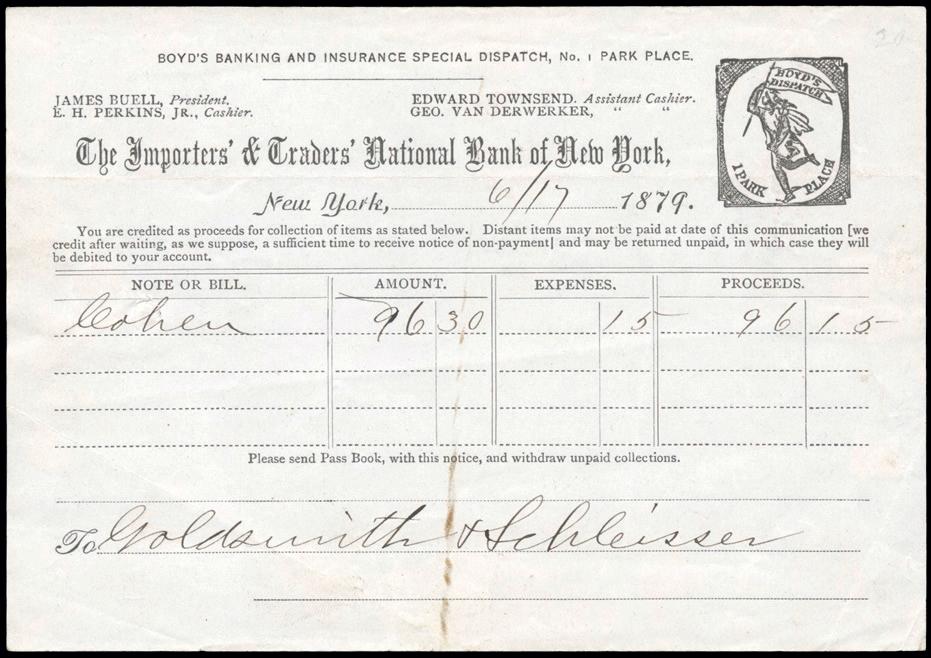 BOYD'S BANKING AND INSURANCE SPECIAL DISPATCH, No. 1 PARK PLACE.
JAMES BUELL, President.
E. H. PERKINS, JR., Cashier.
EDWARD TOWNSEND. Assistant Cashier.
GEO. VAN DERWERKER, " "
BOYD'S
DISPATCH
1 PARK PLACE
The Importers' & Traders' National Bank of New York,
New York, 6/17 1879.
You are credited as proceeds for collection of items as stated below. Distant items may not be paid at date of this communication [we
credit after waiting, as we suppose, a sufficient time to receive notice of non-payment] and may be returned unpaid, in which case they will
be debited to your account.
NOTE OR BILL. AMOUNT. EXPENSES. PROCEEDS.
Cohen 96 30 15 96 15
Please send Pass Book, with this notice, and withdraw unpaid collections.
To Goldsmith & Schleisser